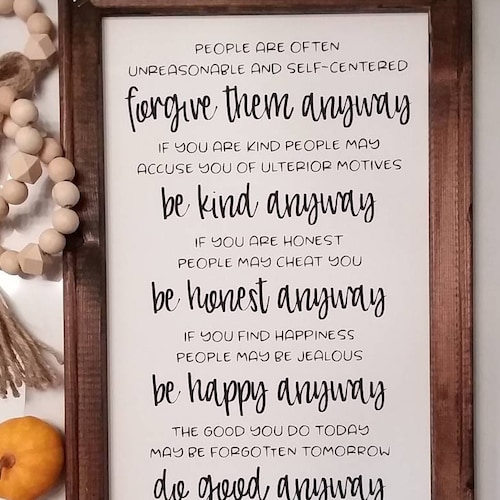 PEOPLE ARE OFTEN
UNREASONABLE AND SELF-CENTERED
forgive them anyway
IF YOU ARE KIND PEOPLE MAY
ACCUSE YOU OF ULTERIOR MOTIVES
be kind anyway
IF YOU ARE HONEST
PEOPLE MAY CHEAT YOU
be honest anyway
IF YOU FIND HAPPINESS
PEOPLE MAY BE JEALOUS
be happy anyway
THE GOOD YOU DO TODAY
MAY BE FORGOTTEN TOMORROW
do good anyway